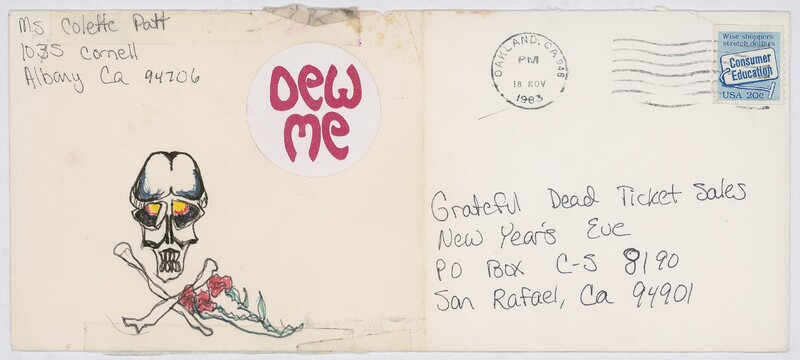 Ms Colette Patt
1035 Cornell
Albany Ca 94706
Dew
me
OAKLAND, CA 946
PM
18 NOV
1983
Wise shoppers
stretch dollars
Consumer
Education
USA 20c
Grateful Dead Ticket Sales
New Year's Eve
PO Box C-S 8190
San Rafael, Ca 94901